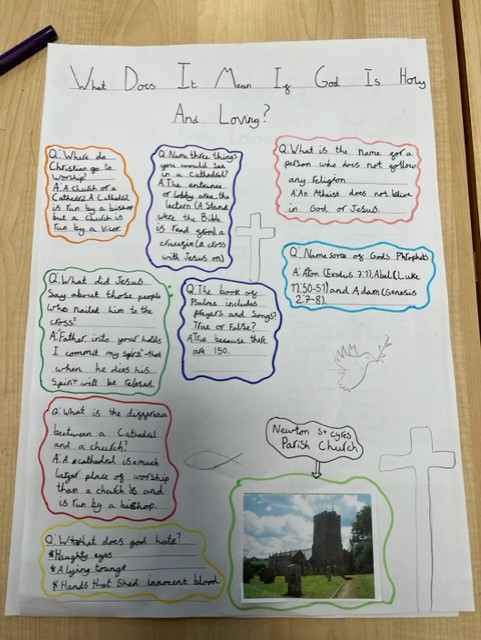 What Does It Mean If God Is Holy
And Loving?
Q: Where do
Christian go to
worship?
A: A church or a
Catedral. A Catedral
is run by a bishop
but a Church is
run by a Vicor.
Q: Name three things
you would see
in a Cathedral?
A: The entrance
or lobby area, the
lectern (A Stand
were the Bible
is read from) a
crucifix (a cross
with Jesus on)
Q: What is the name for a
person who does not follow
any religion
A: An Athaist does not belive
in God or Jesus.
Q: Name some of Gods Phrophets
A: Aron (Exodus 7:1), Abel (Luke
11:50-51) and Adam (Genesis
2:7-8).
Q: What did Jesus
Say about those people
who nailed him to the
cross?
A: Father into your holds
I commit my spirit that
when he dies his
spirit will be relesed.
Q: The book of
Psalms includes
prayers and Songs?
True or False?
A: True because there
are 150.
Q: What is the difference
between a Cathedral
and a church?
A: A cathedral is a much
larger place of worship
than a church is and
is run by a bishop.
Newton St Cyres
Parish Church
Q. What does god hate?
*Haughty eyes
*A lying tounge
*Hands that Shed innocent blood